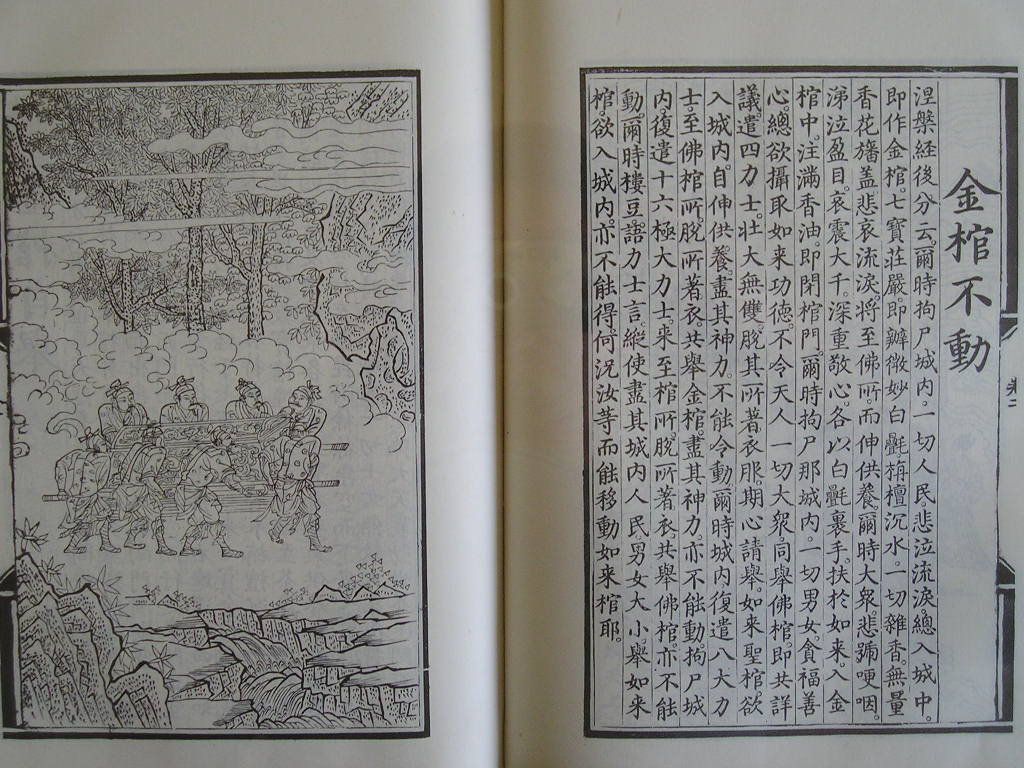 金棺不動
涅槃経後分云。爾時拘尸城内。一切人民。悲泣流淚。總入城中。
即作金棺。七寶莊嚴。即辦微妙白㲲。栴檀沉水。一切雜香。無量
香花旛盖。悲哀流淚。將至佛所。而伸供養。爾時大衆。悲號哽咽。
涕泣盈目。哀震大千。深重敬心。各以白㲲裹手。扶於如来。入金
棺中。注滿香油。即閉棺門。爾時拘尸那城内。一切男女。貪福善
心。總欲攝取如来功德。不令天人一切大衆。同舉佛棺。即共詳
議。遣四力士。壯大無雙。脫其所著衣服。期心請舉。如来聖棺。欲
入城内。自伸供養。盡其神力。不能令動。爾時城内。復遣八大力
士。至佛棺所。脫所著衣。共舉金棺。盡其神力。亦不能動。拘尸城
内。復遣十六極大力士。来至棺所。脫所著衣。共舉佛棺。亦不能
動。爾時樓豆。語力士言。縱使盡其城内人民。男女大小。舉如来
棺。欲入城内。亦不能得。何況汝等。而能移動如来棺耶。
卷二